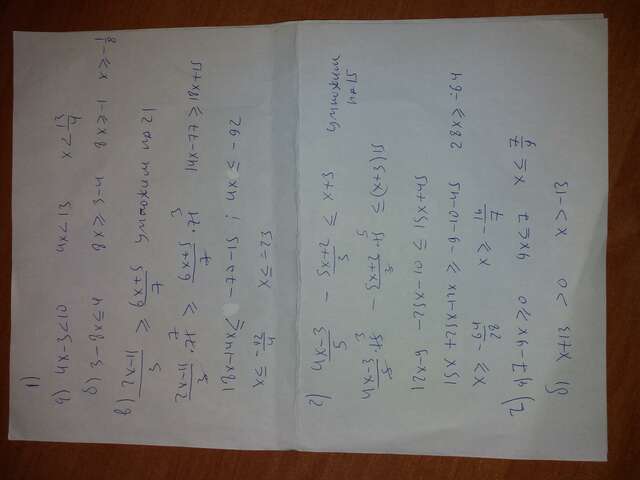 1)
а) 4x-3<10 4x<13 x<13/4
б) 3-8x≤4 8x≥3-4 8x≥-1 x≥-1/8
в) (2x-11)/3 ≥ (6x+5)/7 умножим на 21
(2x-11)/3 · 21 ≥ (6x+5)/7 · 21 14x-77≥18x+15
18x-14x≤ -77-15 ; 4x≤-92
x≤-92/4 x≤-23
г) (4x-3)/5 - (5x+2)/3 ≤ x+3 умножим на 15
(4x-3)/5 · 15 - (5x+2)/3 · 15 ≤(x+3)15
12x-9-25x-10≤15x+45
15x+25x-12x≥-9-10-45 28x≥-64
x≥-64/28 x≥-16/7
2) а) 7-9x≥0 9x≤7 x≤7/9
б) x+13>0 x>-13